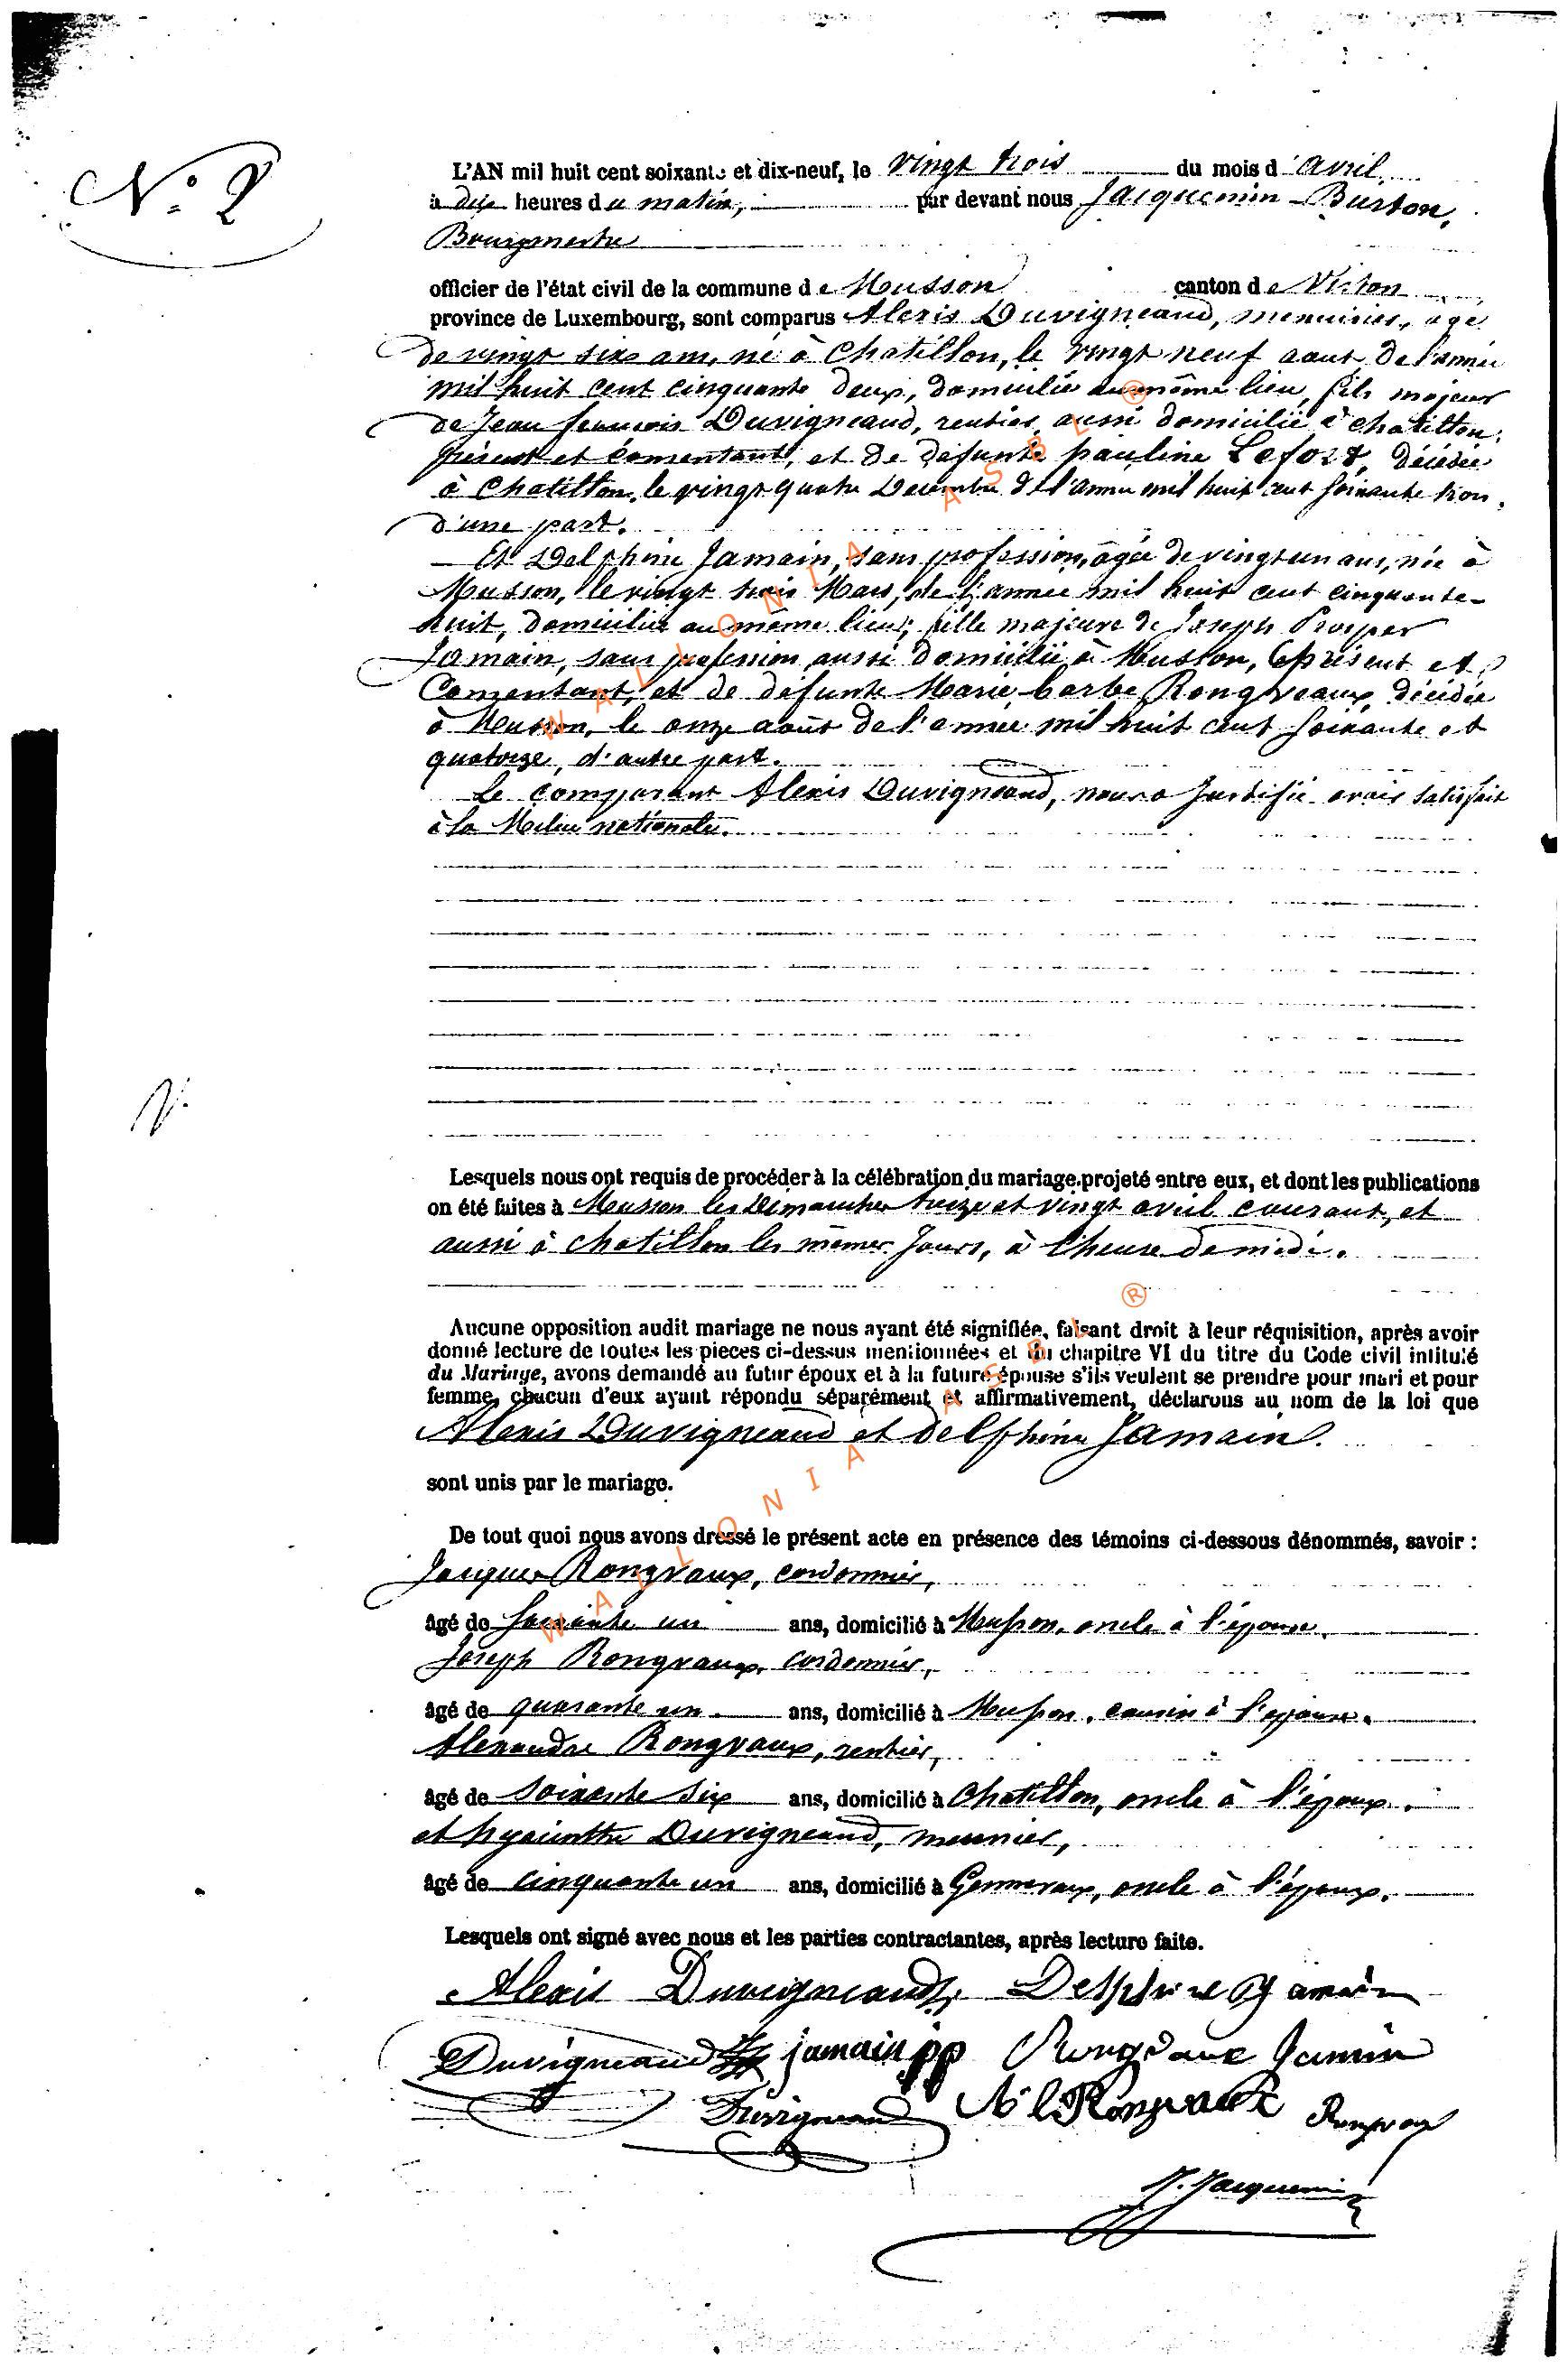 N° 2
L'AN mil huit cent soixante et dix-neuf, le vingt trois du mois d'avril
à dix heures du matin, par devant nous Jacquemin-Burton,
Bourgmestre
officier de l'état civil de la commune de Musson canton de Virton
province de Luxembourg, sont comparus Alexis Duvigneaud, menuisier, agé
de vingt six ans, né à Chatillon, le vingt neuf aout de l'année
mil huit cent cinquante deux, domicilié au même lieu, fils majeur
de Jean françois Duvigneaud, rentier, aussi domicilié à chatillon,
présent et consentant, et de défunte pauline Lefort, décédée
à Chatillon, le vingt quatre Décembre de l'année mil huit cent soixante trois,
d'une part.
Et Delphine Jamain, sans profession, âgée de vingt un ans, née à
Musson, le vingt trois Mars, de l'année mil huit cent cinquante-
huit, domiciliée au même lieu, fille majeure de Joseph Prosper
Jamain, sans profession, aussi domicilié à Musson, présent et
Consentant, et de défunte Marie barbe Rongveaux, décédée
à Musson, le onze août de l'année mil huit cent soixante et
quatorze, d'autre part.
Le comparant Alexis Duvigneaud, nous a Justifié avoir satisfait
à la Milice nationale.
Lesquels nous ont requis de procéder à la célébration du mariage projeté entre eux, et dont les publications
on été faites à Musson les Dimanches treize et vingt avril courant, et
aussi à chatillon les mêmes Jours, à l'heure de midi.
Aucune opposition audit mariage ne nous ayant été signifiée, faisant droit à leur réquisition, après avoir
donné lecture de toutes les pieces ci-dessus mentionnées et du chapitre VI du titre du Code civil intitulé
du Mariage, avons demandé au futur époux et à la future épouse s'ils veulent se prendre pour mari et pour
femme, chacun d'eux ayant répondu séparément et affirmativement, déclarons au nom de la loi que
Alexis Duvigneaud et Delphine Jamain.
sont unis par le mariage.
De tout quoi nous avons dressé le présent acte en présence des témoins ci-dessous dénommés, savoir :
Jacques Rongvaux, cordonnier,
âgé de soixante un ans, domicilié à Musson, oncle à l'épouse.
Joseph Rongvaux, cordonnier,
âgé de quarante un ans, domicilié à Musson, cousin à l'épouse.
Alexandre Rongvaux, rentier,
âgé de soixante six ans, domicilié à Chatillon, oncle à l'époux.
et hyacinthe Duvigneaud, meunier,
âgé de cinquante un ans, domicilié à Gennevaux, oncle à l'époux.
Lesquels ont signé avec nous et les parties contractantes, après lecture faite.
Alexis Duvigneaud Delphine Jamain
Duvigneaud jamain jp Rongvaux Jamin
Duvigneaud Al Rongvaux Rongvaux
J. Jacquemin
WALLONIA ASBL ®
WALLONIA ASBL ®